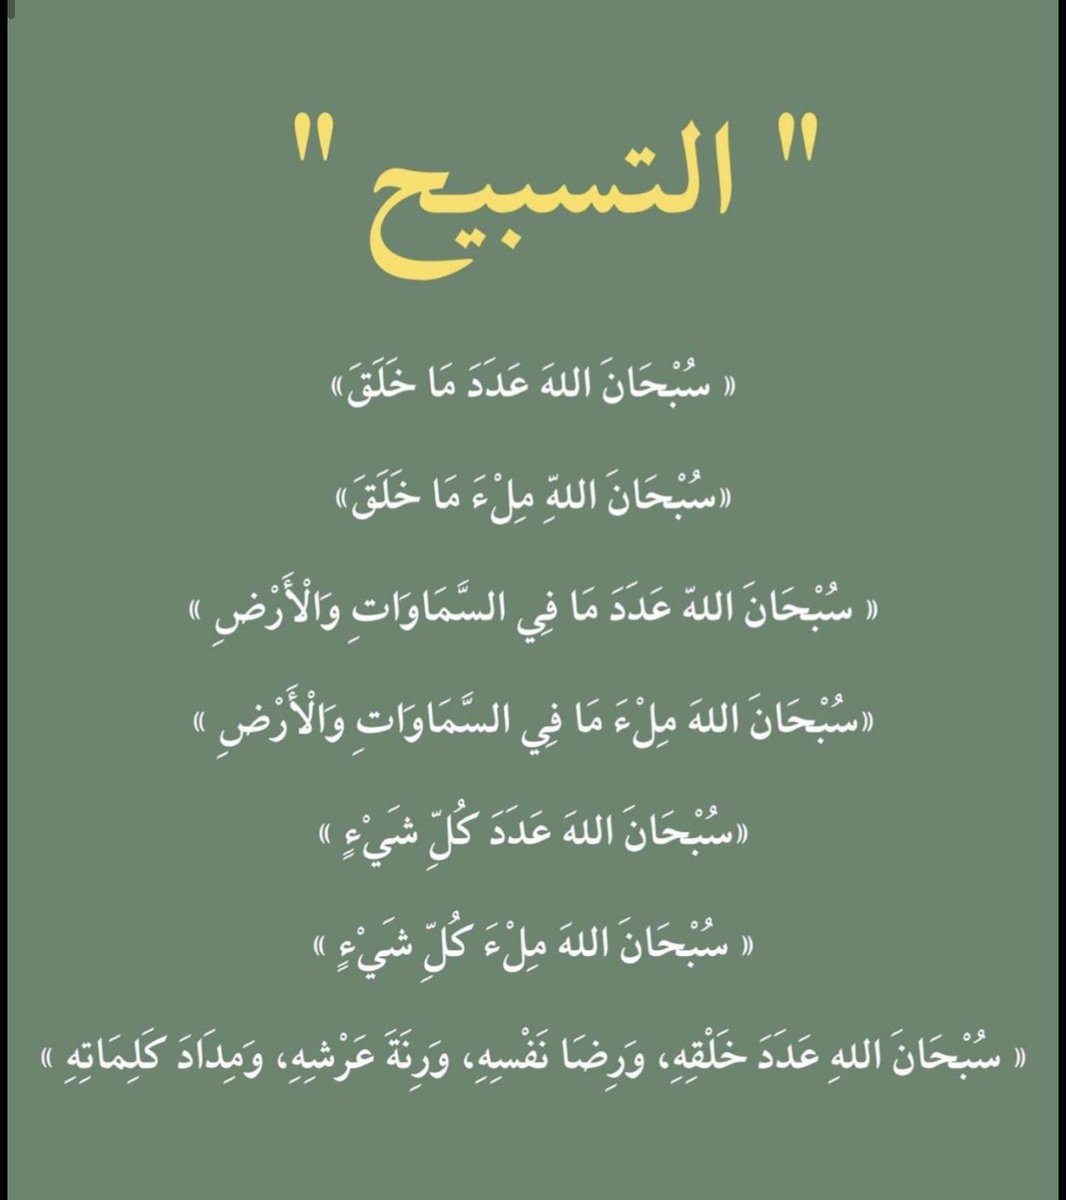 " التسبيح "
« سُبْحَانَ اللهَ عَدَدَ مَا خَلَقَ»
«سُبْحَانَ اللهِّ مِلْءَ مَا خَلَقَ»
« سُبْحَانَ اللهّ عَدَدَ مَا فِي السَّمَاوَاتِ وَالْأَرْضِ »
«سُبْحَانَ اللهَ مِلْءَ مَا فِي السَّمَاوَاتِ وَالْأَرْضِ »
«سُبْحَانَ اللهَ عَدَدَ كُلِّ شَيْءٍ »
« سُبْحَانَ اللهَ مِلْءَ كُلِّ شَيْءٍ »
« سُبْحَانَ اللهِ عَدَدَ خَلْقِهِ، وَرِضَا نَفْسِهِ، وَرِنَةَ عَرْشِهِ، وَمِدَادَ كَلِمَاتِهِ »